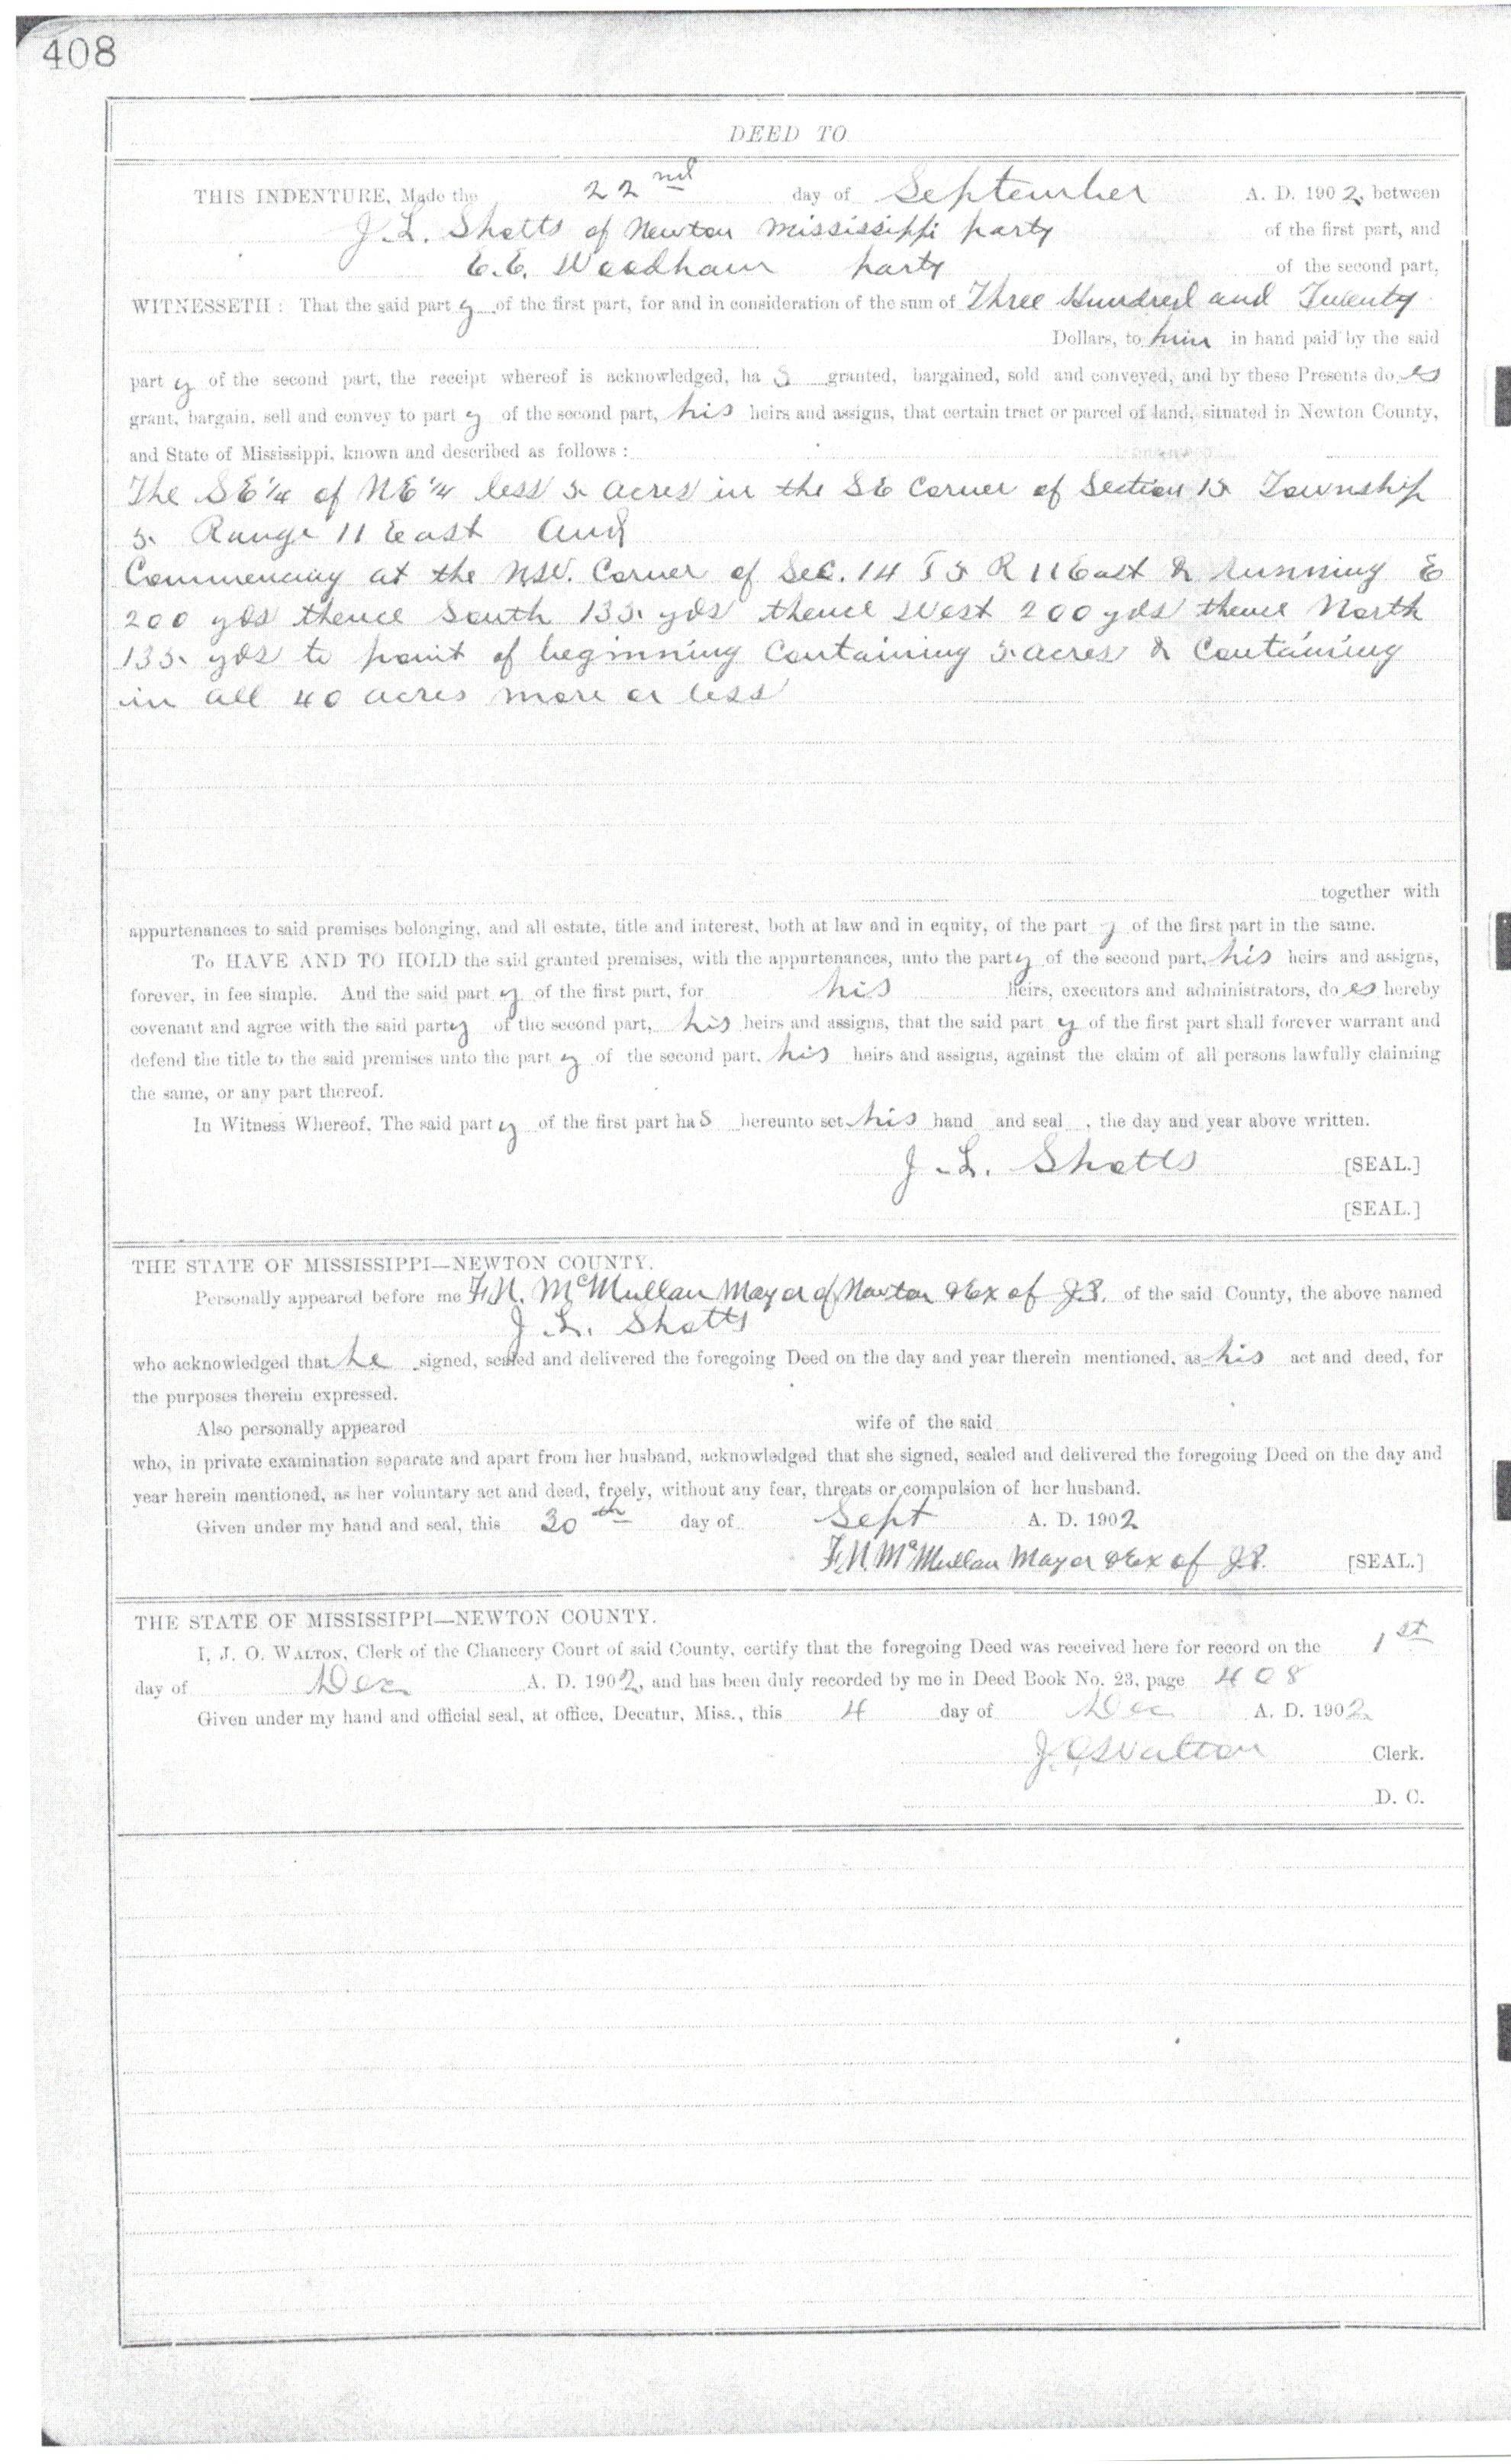 408
DEED TO
THIS INDENTURE, Made the 22nd day of September A. D. 1902, between
J. L. Shotts of Newton Mississippi party of the first part, and
E. E. Woodham party of the second part,
WITNESSETH: That the said party of the first part, for and in consideration of the sum of Three Hundred and Twenty
Dollars, to him in hand paid by the said
party of the second part, the receipt whereof is acknowledged, has granted, bargained, sold and conveyed, and by these Presents does
grant, bargain, sell and convey to party of the second part, his heirs and assigns, that certain tract or parcel of land, situated in Newton County,
and State of Mississippi, known and described as follows:
The SE 1/4 of NE 1/4 less 5 acres in the SE Corner of Section 15 Township
5 Range 11 East And
Commencing at the N.W. Corner of Sec. 14 T 5 R 11 East & running E
200 yds thence South 135 yds thence West 200 yds thence North
135 yds to point of beginning Containing 5 acres & Containing
in all 40 acres more or less
together with
appurtenances to said premises belonging, and all estate, title and interest, both at law and in equity, of the party of the first part in the same.
To HAVE AND TO HOLD the said granted premises, with the appurtenances, unto the party of the second part, his heirs and assigns,
forever, in fee simple. And the said party of the first part, for his heirs, executors and administrators, does hereby
covenant and agree with the said party of the second part, his heirs and assigns, that the said party of the first part shall forever warrant and
defend the title to the said premises unto the party of the second part, his heirs and assigns, against the claim of all persons lawfully claiming
the same, or any part thereof.
In Witness Whereof, The said party of the first part has hereunto set his hand and seal , the day and year above written.
J. L. Shotts [SEAL.]
[SEAL.]
THE STATE OF MISSISSIPPI—NEWTON COUNTY.
Personally appeared before me F. N. McMullan Mayor of Newton & Ex of J.P. of the said County, the above named
J. L. Shotts
who acknowledged that he signed, sealed and delivered the foregoing Deed on the day and year therein mentioned, as his act and deed, for
the purposes therein expressed.
Also personally appeared wife of the said
who, in private examination separate and apart from her husband, acknowledged that she signed, sealed and delivered the foregoing Deed on the day and
year herein mentioned, as her voluntary act and deed, freely, without any fear, threats or compulsion of her husband.
Given under my hand and seal, this 30th day of Sept A. D. 1902
F. N. McMullan Mayor & Ex of J.P. [SEAL.]
THE STATE OF MISSISSIPPI—NEWTON COUNTY.
I, J. O. WALTON, Clerk of the Chancery Court of said County, certify that the foregoing Deed was received here for record on the 1st
day of Dec A. D. 1902, and has been duly recorded by me in Deed Book No. 23, page 408
Given under my hand and official seal, at office, Decatur, Miss., this 4 day of Dec A. D. 1902
J. O. Walton Clerk.
D. C.